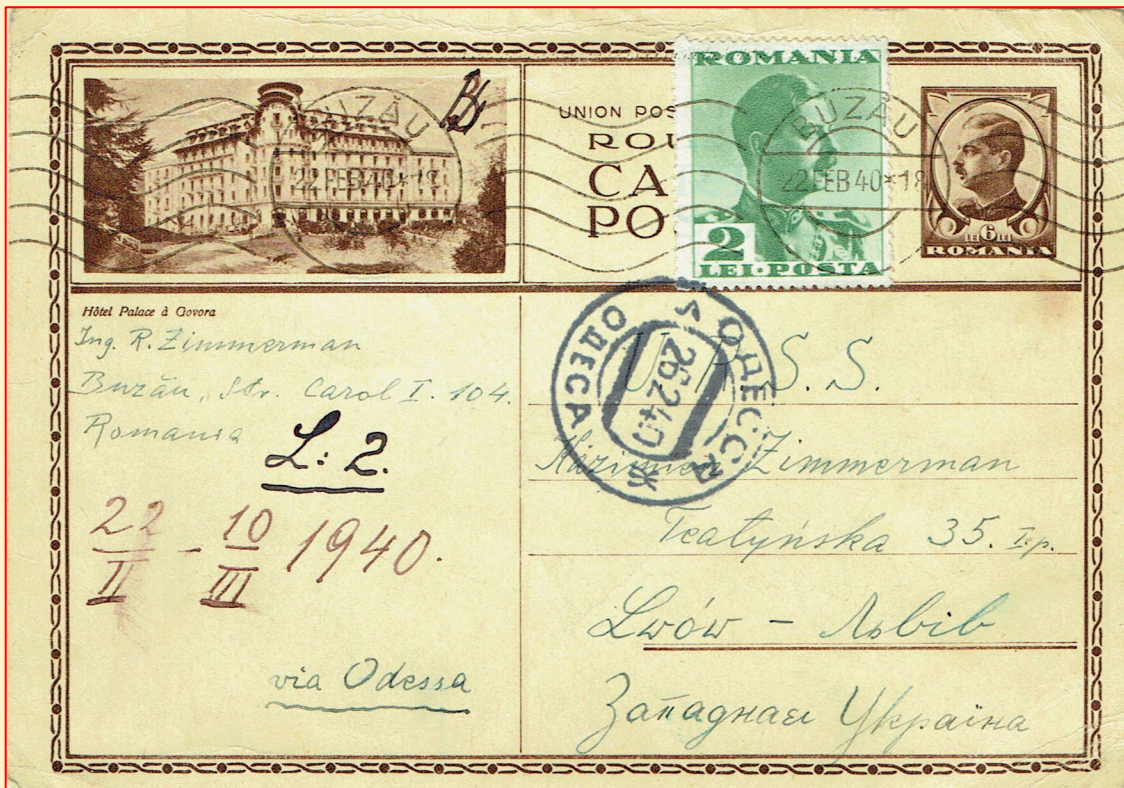 UNION POS
ROU
CA
PO
ROMANIA
2
LEI·POSTA
BUZĂU
22 FEB 40 ✶ 18
BUZĂU
22 FEB 40 ✶ 18
LEI 6 LEI
ROMANIA
Hôtel Palace à Govora
Ing. R. Zimmerman
Buzău, Str. Carol I. 104.
Romania
L: 2.
22/II - 10/III 1940.
via Odessa
ОДЕССА
26 2 40
ОДЕСА
U.R.S.S.
Kazimierz Zimmerman
Teatyńska 35. I p.
Lwów - Львів
Западная Україна